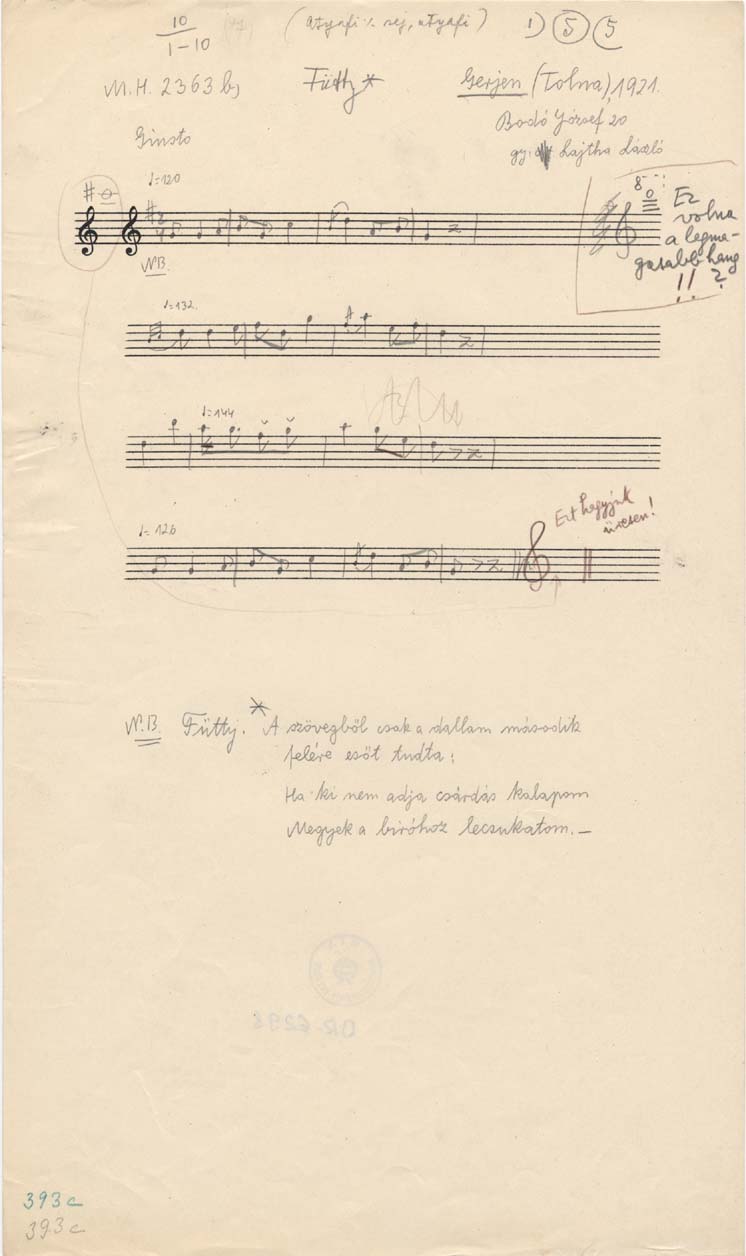 10
1-10
(atyafi /. sej, atyafi)
1) 5 5
M.H. 2363 b)
Fütty *
Gerjen (Tolna), 1921.
Giusto
Bodó József, 20
gy. Lajtha László
♩=120
8
Ez
volna
a legma-
gasabb hang
!! ?
NB.
♩=132
♩=144
♩=126
Ezt hagyjuk
üresen!
N.B. Fütty. * A szövegből csak a dallam második
felére esőt tudta:
Ha ki nem adja csárdás kalapom
Megyek a biróhoz lecsukatom. —
393c
393c